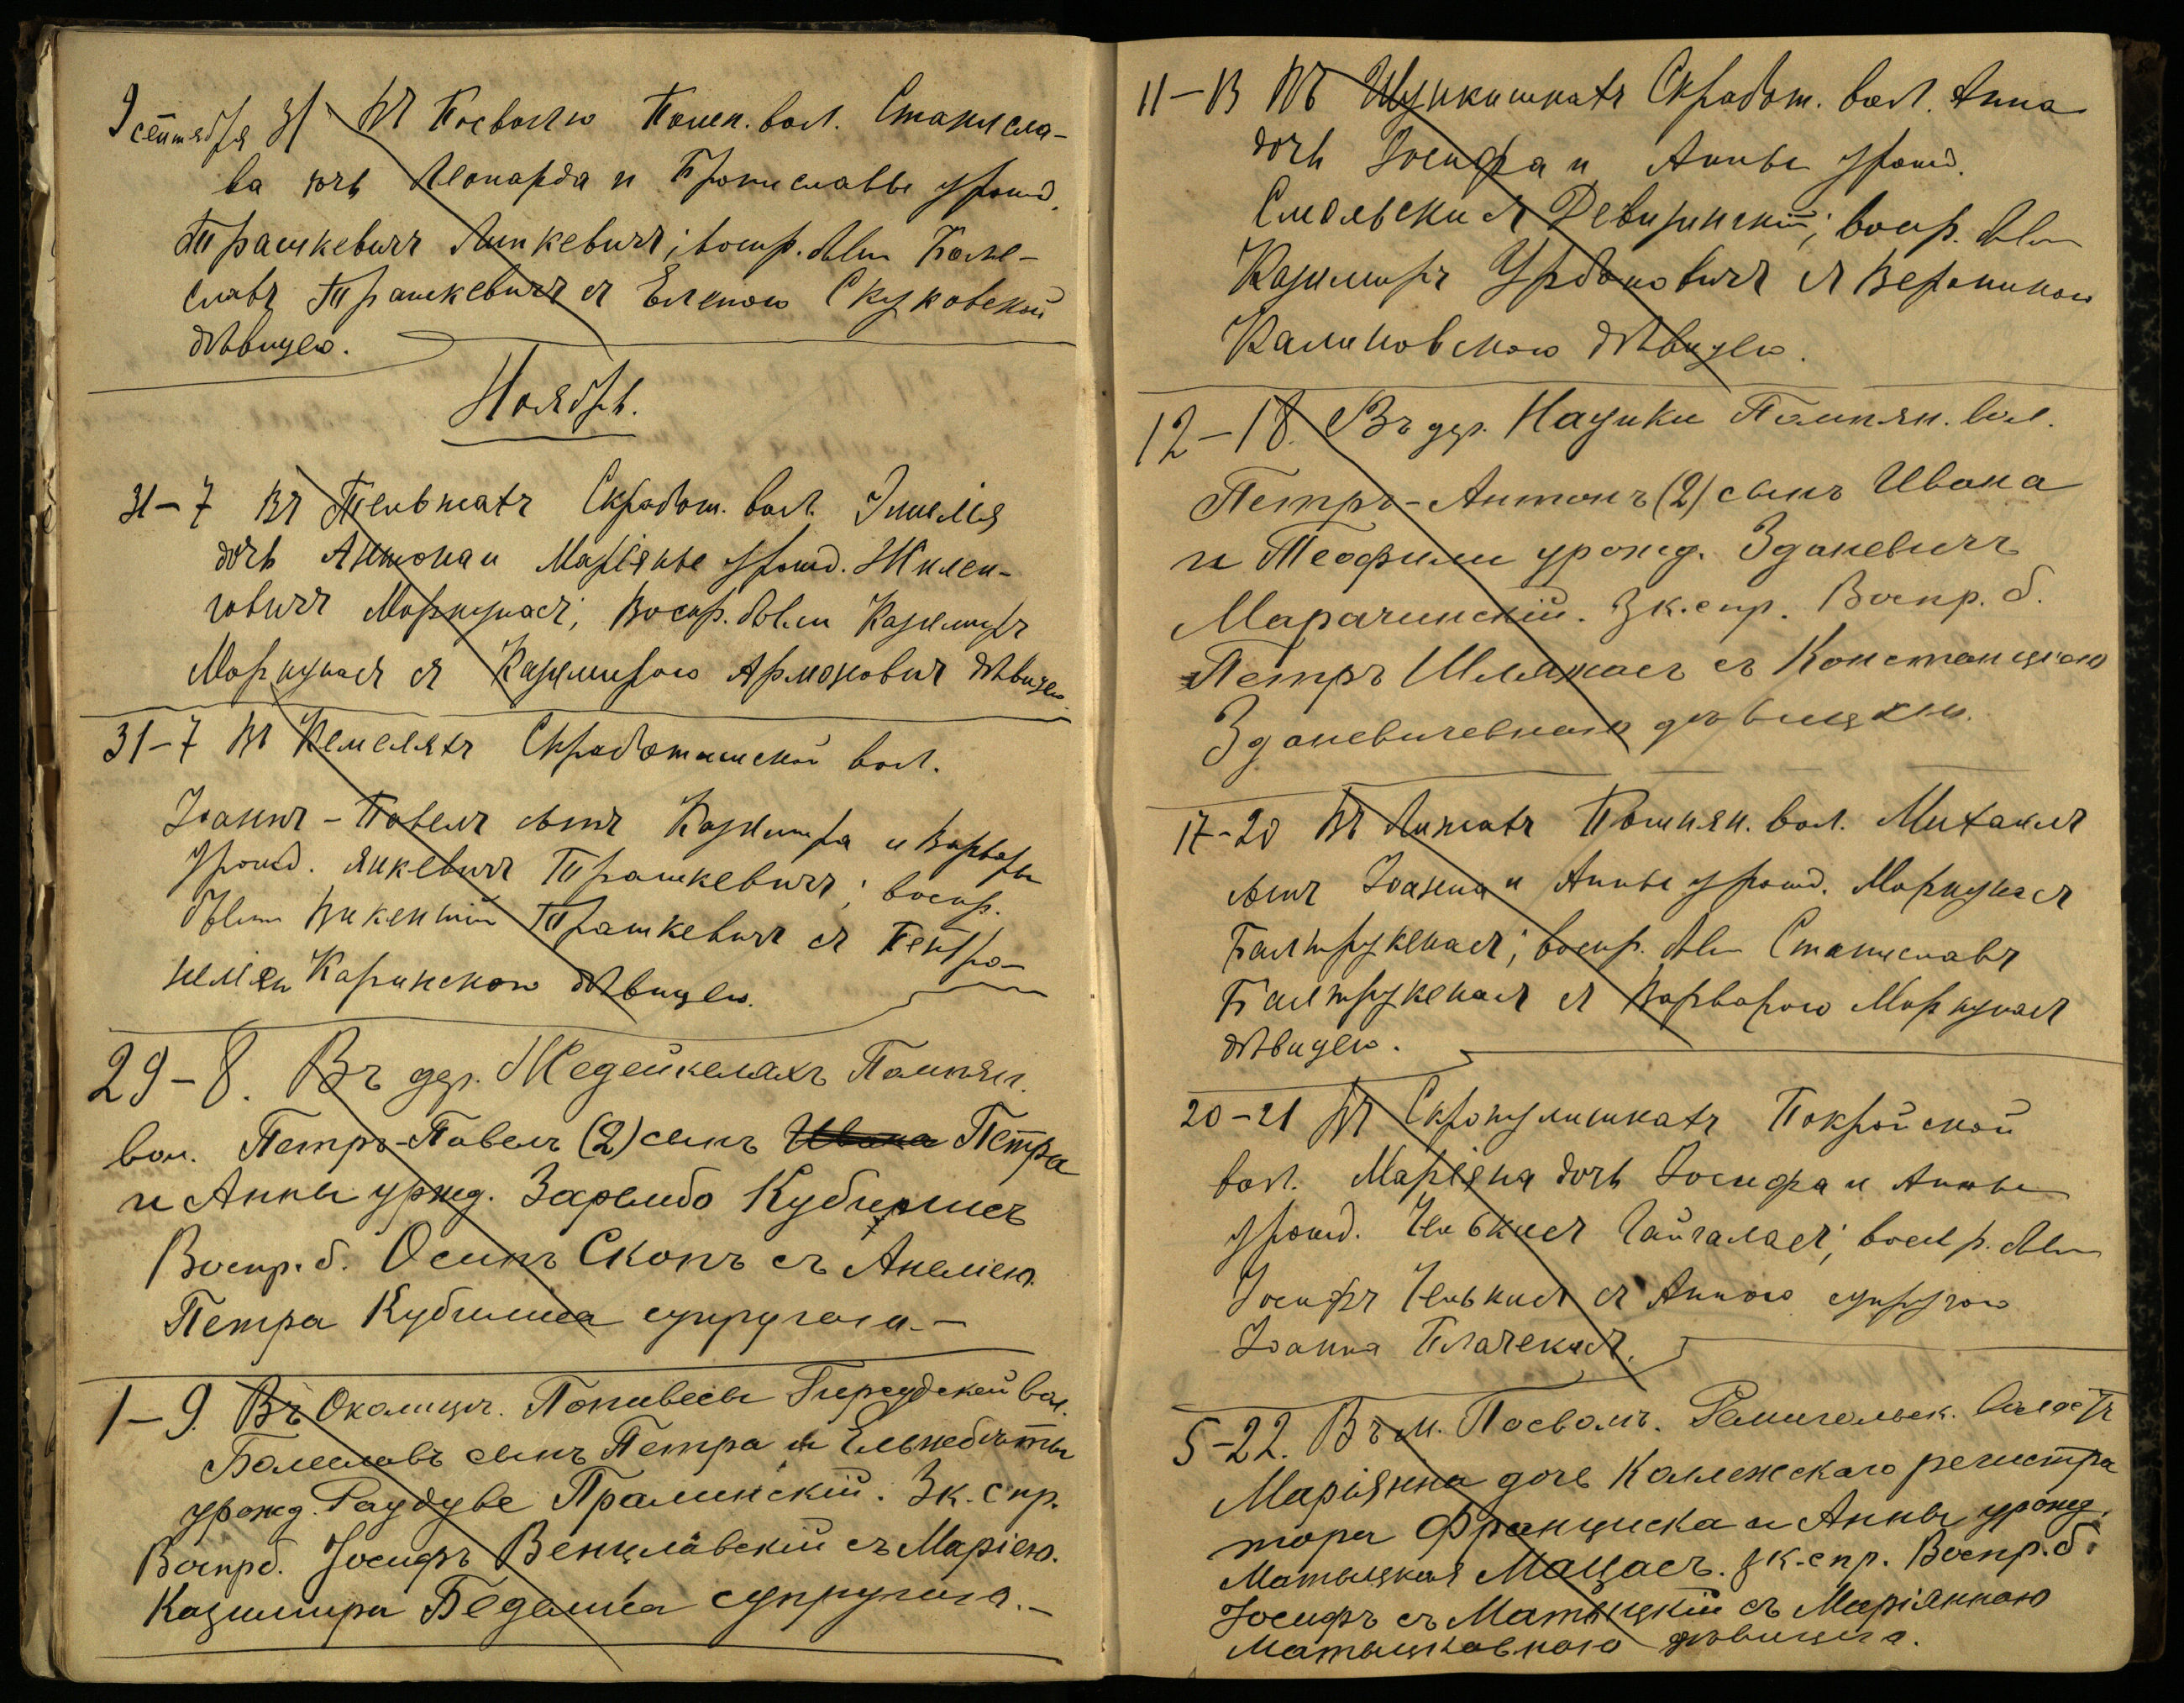 9 сентября 31 Въ Посволю Помп. вол. Станисла-
ва дочь Леонарда и Брониславы урожд.
Трашкевичъ Линкевичъ; воспр. были Боле-
славъ Трашкевичъ съ Еленою Скуковской
дѣвицею.
Ноябрь.
31-7 Въ Скробот. вол. Эмилія
дочь Антона и Маріянны урожд. Жилен-
говичъ Моркунасъ; Воспр. были Казимиръ
Моркунасъ съ Казимирою Армоновичъ дѣвицею.
31-7 Въ Кемеляхъ Скроботишской вол.
Іоаннъ-Павелъ сынъ Казимира и Варвары
урожд. Янкевичъ Трашкевичъ; воспр.
были Викентій Трашкевичъ съ Петро-
нелією Каринскою дѣвицею.
29-8. Въ дер. Жедейкеляхъ Помпян.
вол. Петръ-Павелъ (2) сынъ Ивана Петра
и Анны уржд. Зарембо Кубилисъ
Воспр. б. Осипъ Скопъ съ Анелією
Петра Кубилиса супругою.-
1-9. Въ Околицѣ. Понивесы Гирсудской вол.
Болеславъ сынъ Петра и Ельжбѣты
урожд. Раудуве Пралинскій. Зк. спр.
Воспр б. Іосифъ Венцлавскій съ Марією.
Казимира Бедалиса супругою.-
11-13 Въ Скробот. вол. Анна
дочь Іосифа и Анны урожд.
Смольски съ воспр. были
Казимиръ Урбоновичъ съ Вероникою
Калиновскою дѣвицею.
12-18. Въ дер. Нацики Помпян. вол.
Петръ-Антонъ (2) сынъ Ивана
и Теофили урожд. Здоневичъ
Марачинскій. Зк. спр. Воспр. б.
Петръ Шляжасъ съ Констанцією
Здоневичевною дѣвицею.
17-20 Въ Помпян. вол. Михаилъ
сынъ Іоанна и Анны урожд. Моркунасъ
Балтрукенасъ; воспр. были Станиславъ
Балтрукенасъ съ Варварою Моркунасъ
дѣвицею.
20-21 Въ Покройской
вол. Маріяна дочь Іосифа и Анны
урожд. Ченькисъ Гайгаласъ; воспр. были
Іосифъ Ченькисъ съ Анною супругою
Іоанна Плачекисъ.
5-22. Въ м. Посволь. Ремигольск. Волость
Маріянна дочь Коллежскаго регистра
тора Франциска и Анны урожд.
Матыцкая Мацасъ. Зк. спр. Воспр. б.
Іосифъ съ Матыцкій съ Маріянною
Матыцковною дѣвицею.